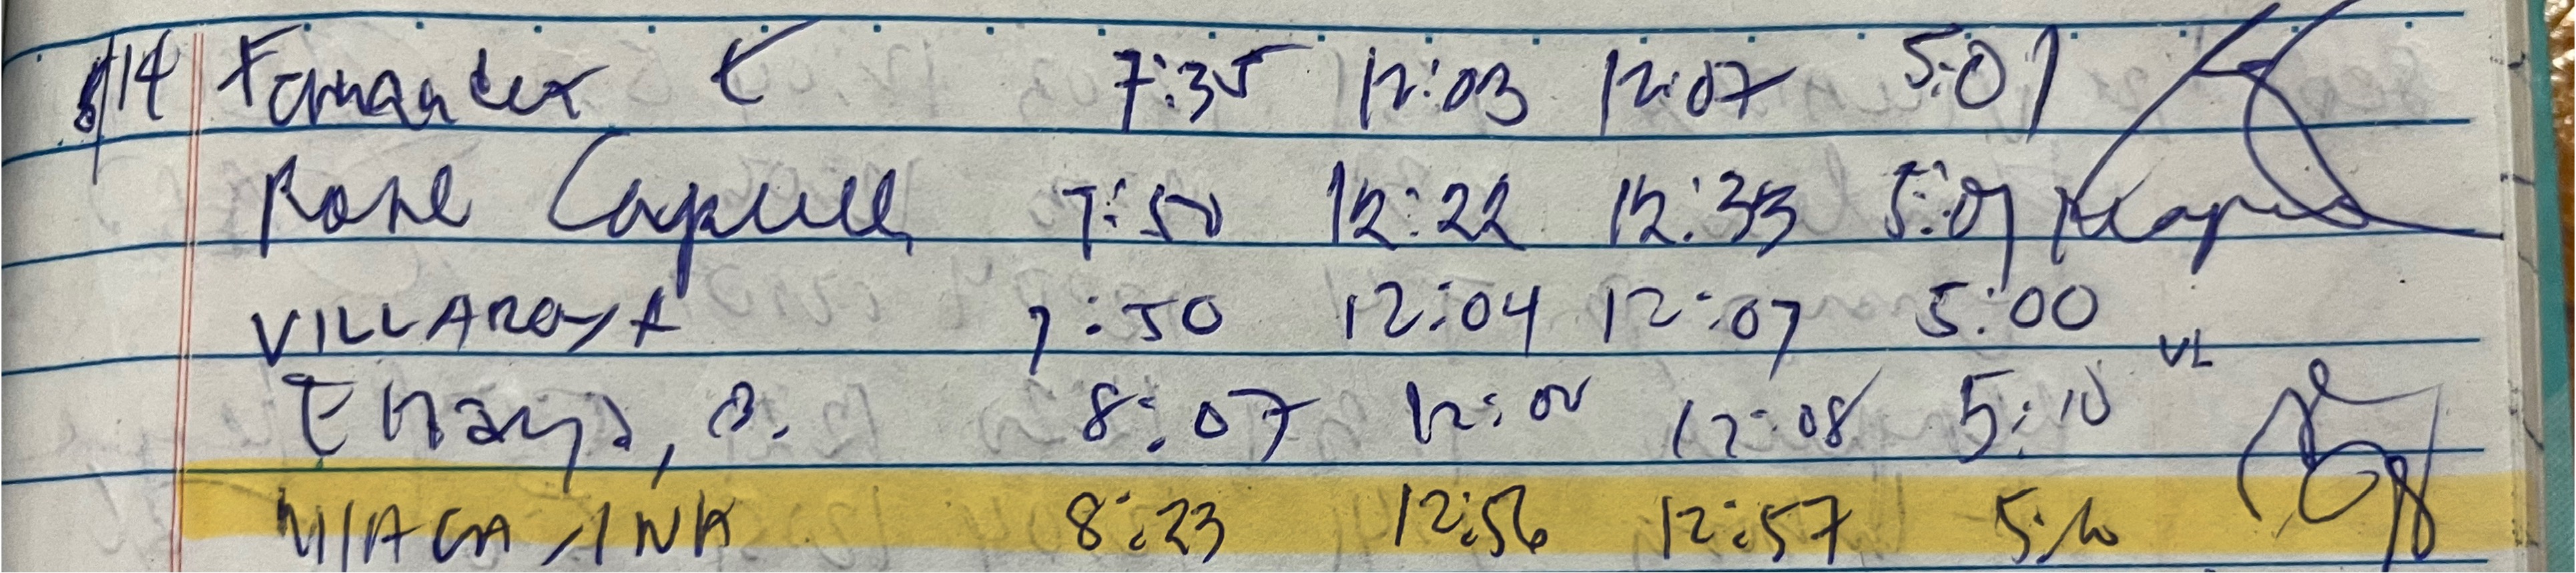 8/14 Fernandez E 7:35 12:03 12:07 5:01
Rose Capule 7:50 12:22 12:33 5:01
VILLAROYA 7:50 12:04 12:07 5:00 VL
8:07 12:00 12:08 5:10
8:23 12:56 12:57